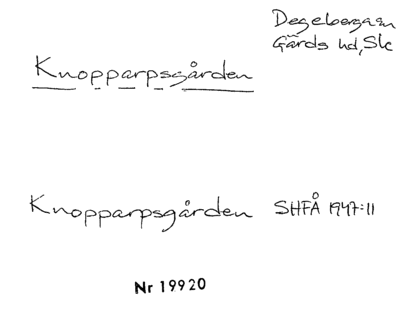 Degeberga sn
Gärds hd, Skc
Knopparpsgården
Knopparpsgården SHFÅ 1947:11
Nr 19920